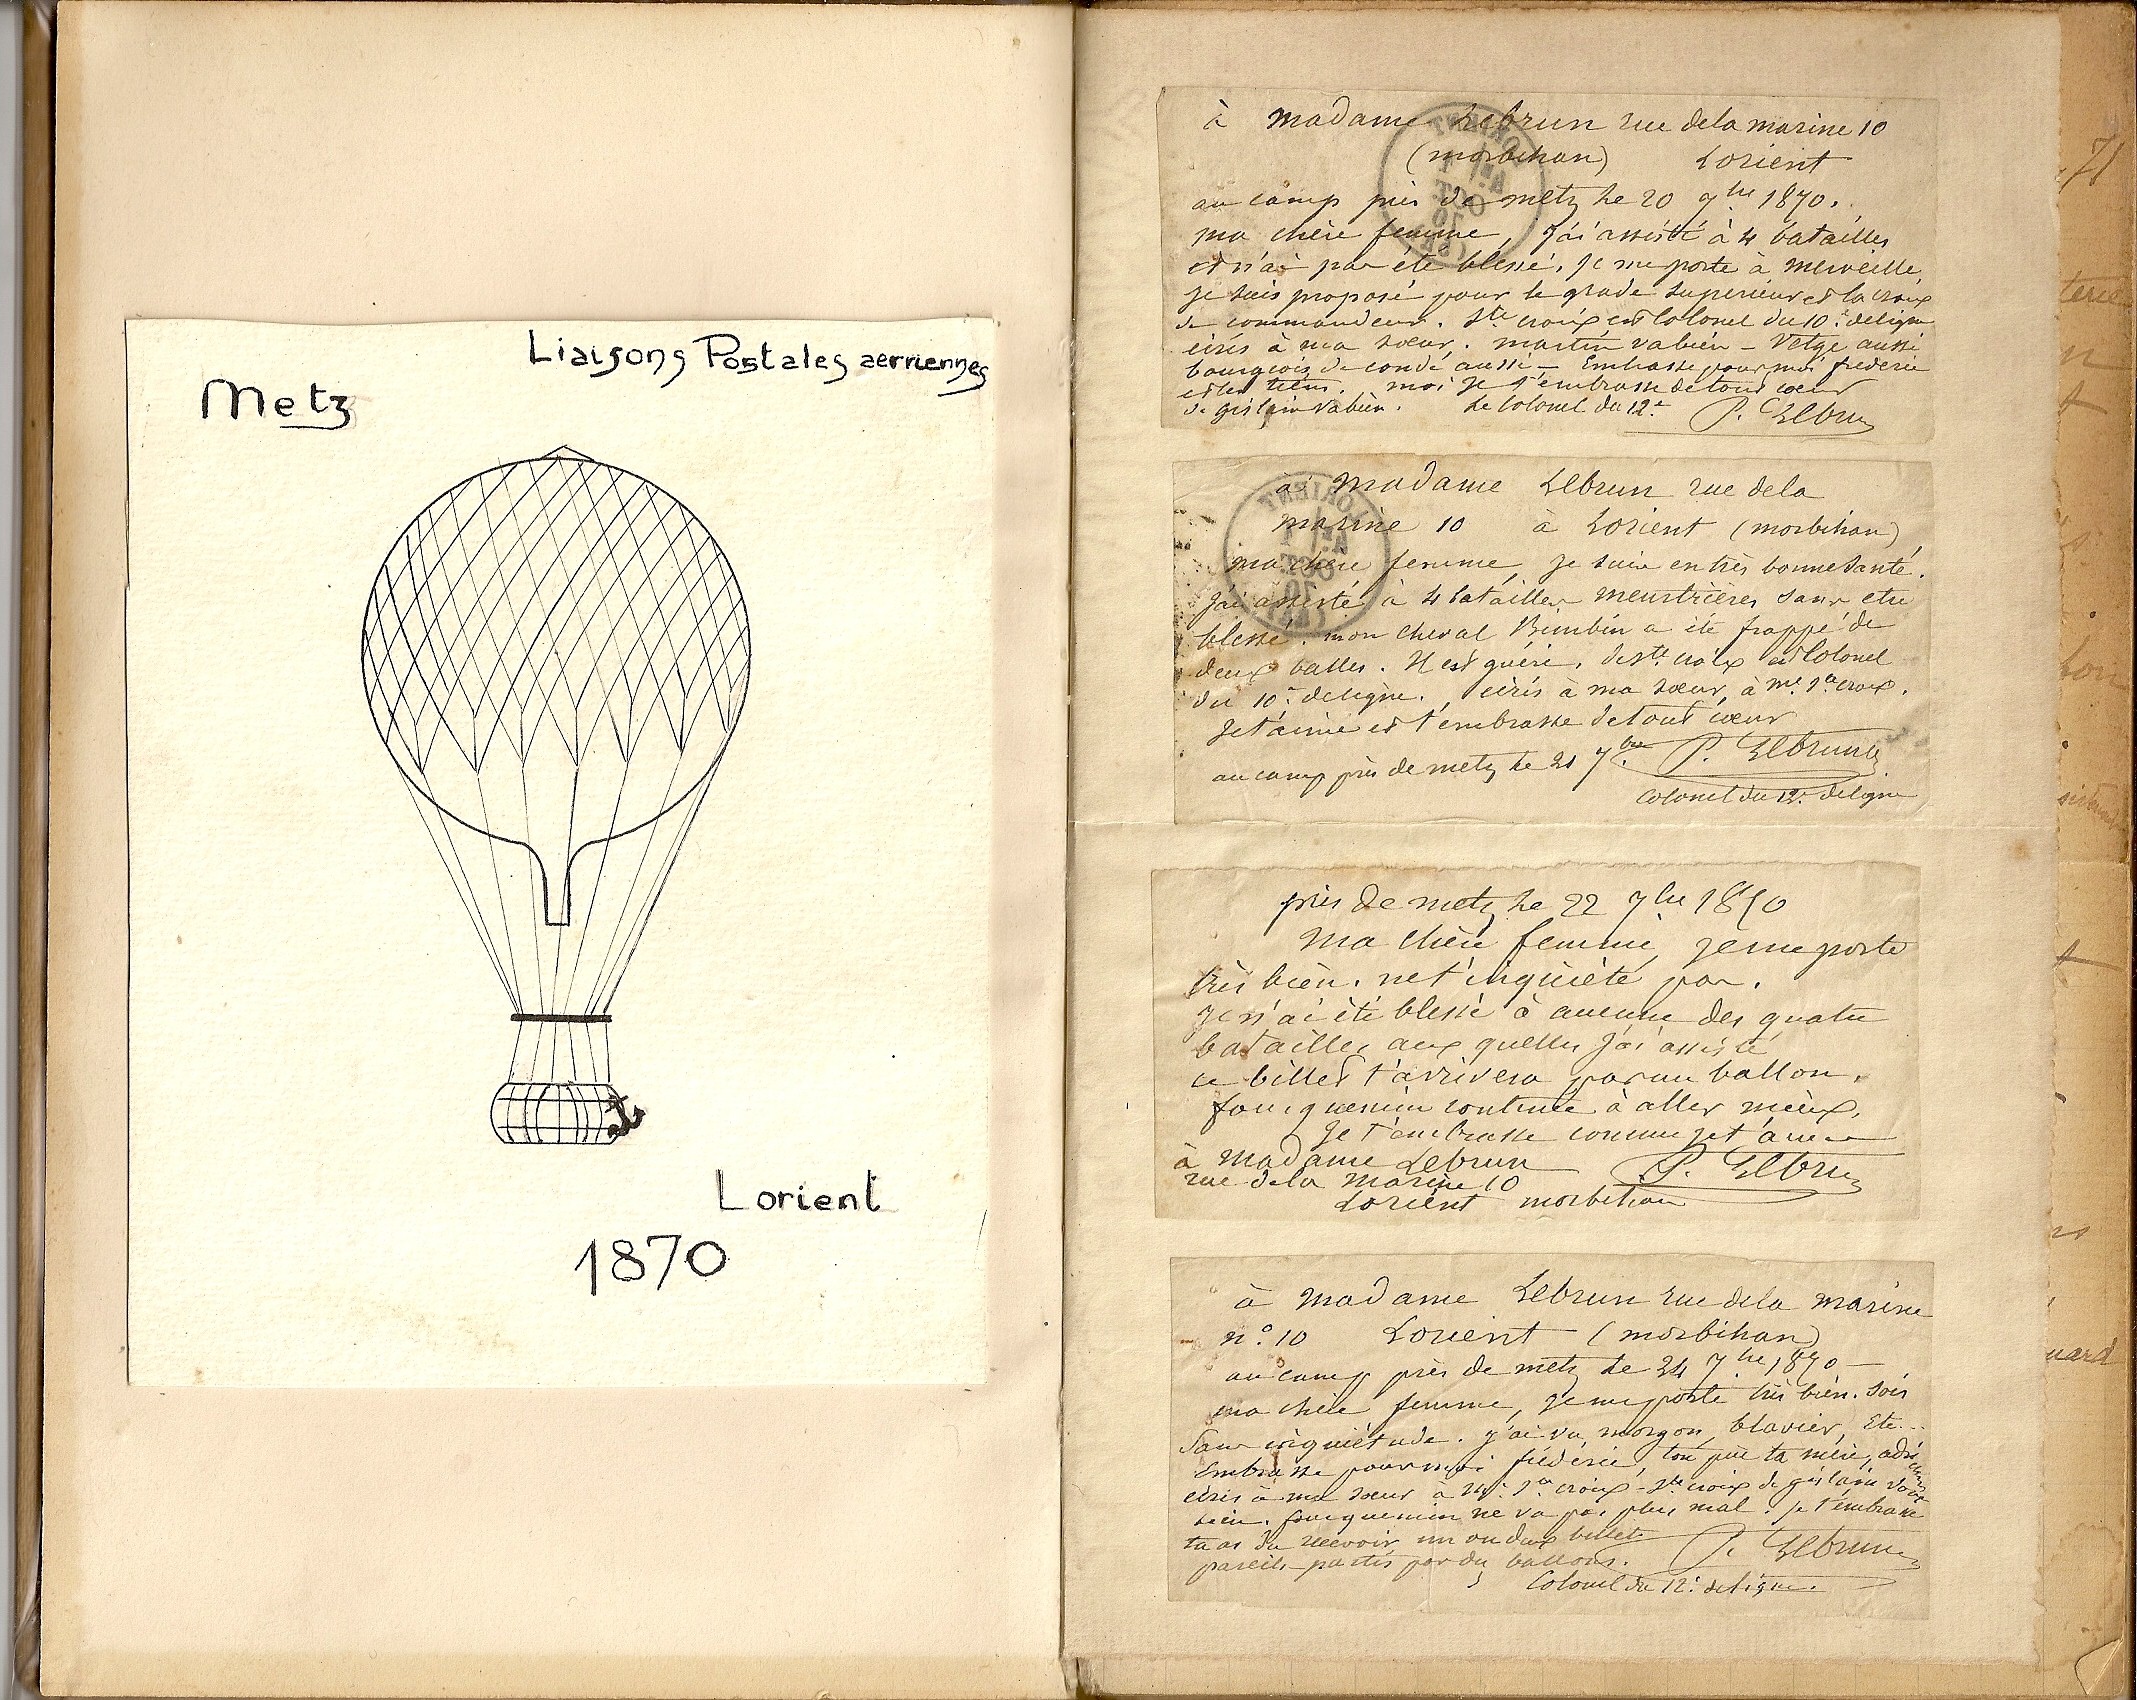 Liaisons Postales aerriennes
Metz
Lorient
1870
à madame Lebrun rue dela marine 10
(morbihan) Lorient
au camp près de metz le 20 7bre 1870.
ma chère femme, j'ai assisté à 4 batailles
et n'ai pas été blessé. je me porte à merveille,
je suis proposé pour le grade superieur et la croix
de commandeur. Ste croix est Colonel du 10e deligne
écris à ma soeur. martin va bien - Vetge aussi
bourgeois, de condé aussi - Embrasse pour moi frederic
et les tiens. moi je t'embrasse de tout coeur
de gislain va bien. Le Colonel du 12e P. Lebrun
à Madame Lebrun rue dela
marine 10 à Lorient (morbihan)
ma chère femme, je suis en très bonne santé.
j'ai assisté à 4 batailles meurtrières sans etre
blessé. mon cheval Bimbin a été frappé de
deux balles. Il est guéri. de Ste croix est Colonel
du 10e deligne. écris à ma soeur, à me Ste croix.
Je t'aime et t'embrasse de tout coeur
au camp près de metz le 21 7bre P. Lebrun
Colonel du 12e deligne
LORIENT
OCT
70
près de metz le 22 7bre 1870
Ma chère femme, je me porte
très bien. ne t'inquiète pas.
Je n'ai été blessé à aucune des quatre
batailles aux quelles j'ai assisté
ce billet t'arrivera par un ballon.
fourquemin continue à aller mieux.
Je t'embrasse comme je t'aime
à Madame Lebrun P. Lebrun
rue dela marine 10
Lorient morbihan
à Madame Lebrun rue dela marine
n° 10 Lorient (morbihan)
au camp près de metz le 24 7bre 1870 -
ma chère femme, je me porte très bien. sois
sans inquiétude. j'ai vu morgon, blavier, Etc...
Embrasse pour moi frédéric, ton père ta mère,
écris à ma soeur à Me Ste croix - Ste croix de gislain vont
bien. fourquemin ne va pas plus mal. je t'embrasse
tu as du recevoir un ou deux billets
pareils partis par des ballons. P. Lebrun
Colonel du 12e deligne.
71